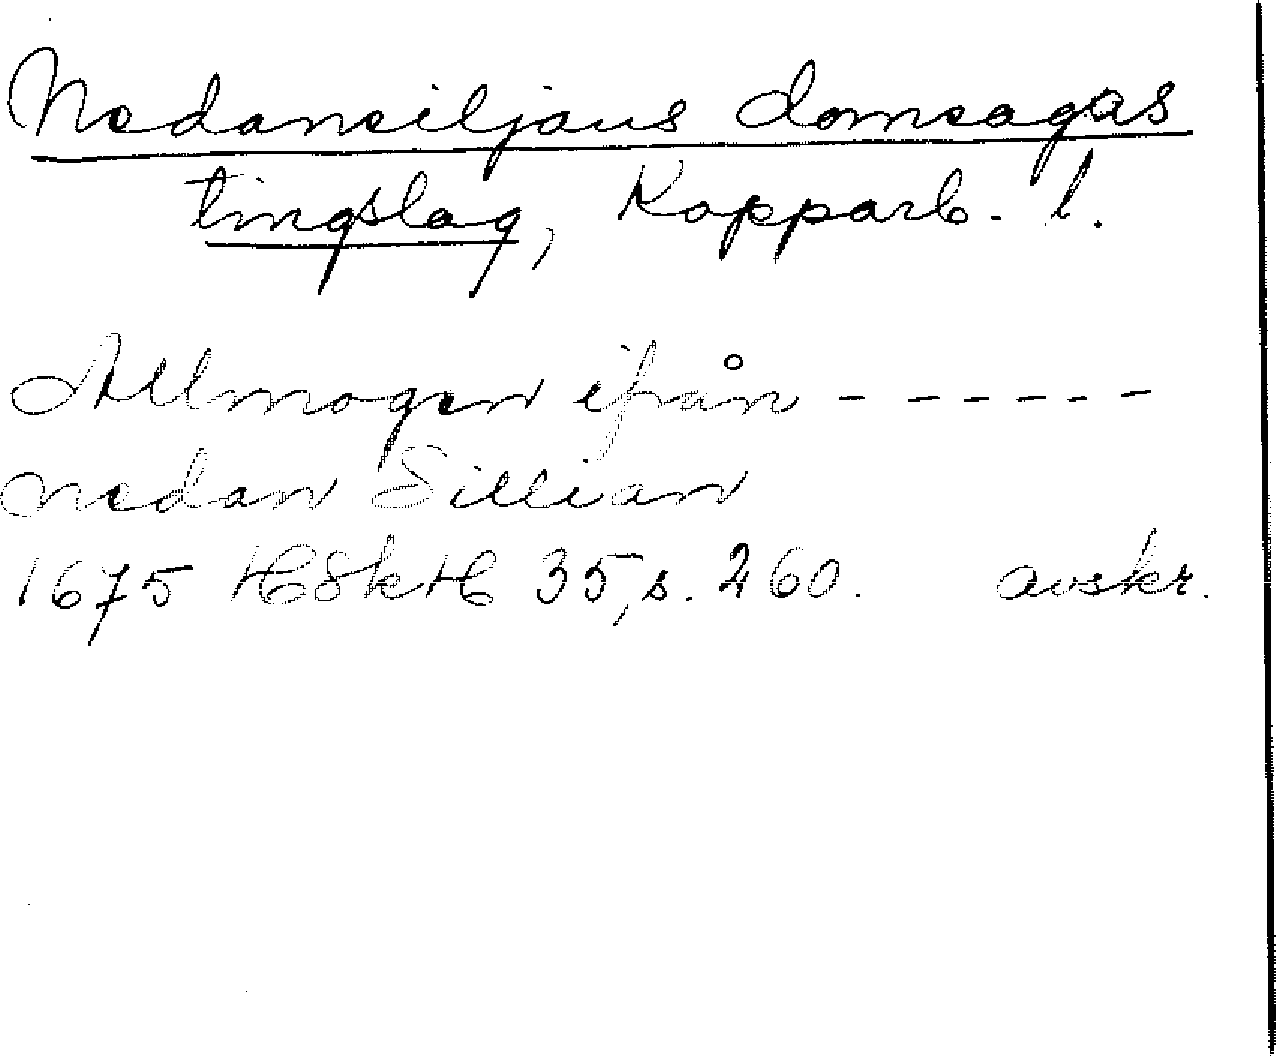 Nedansiljans domsagas
tingslag, Kopparb. l.
Allmogen ifrån - - - - - - -
nedan Sillian
1675 HSkH 35, s. 260. avskr.